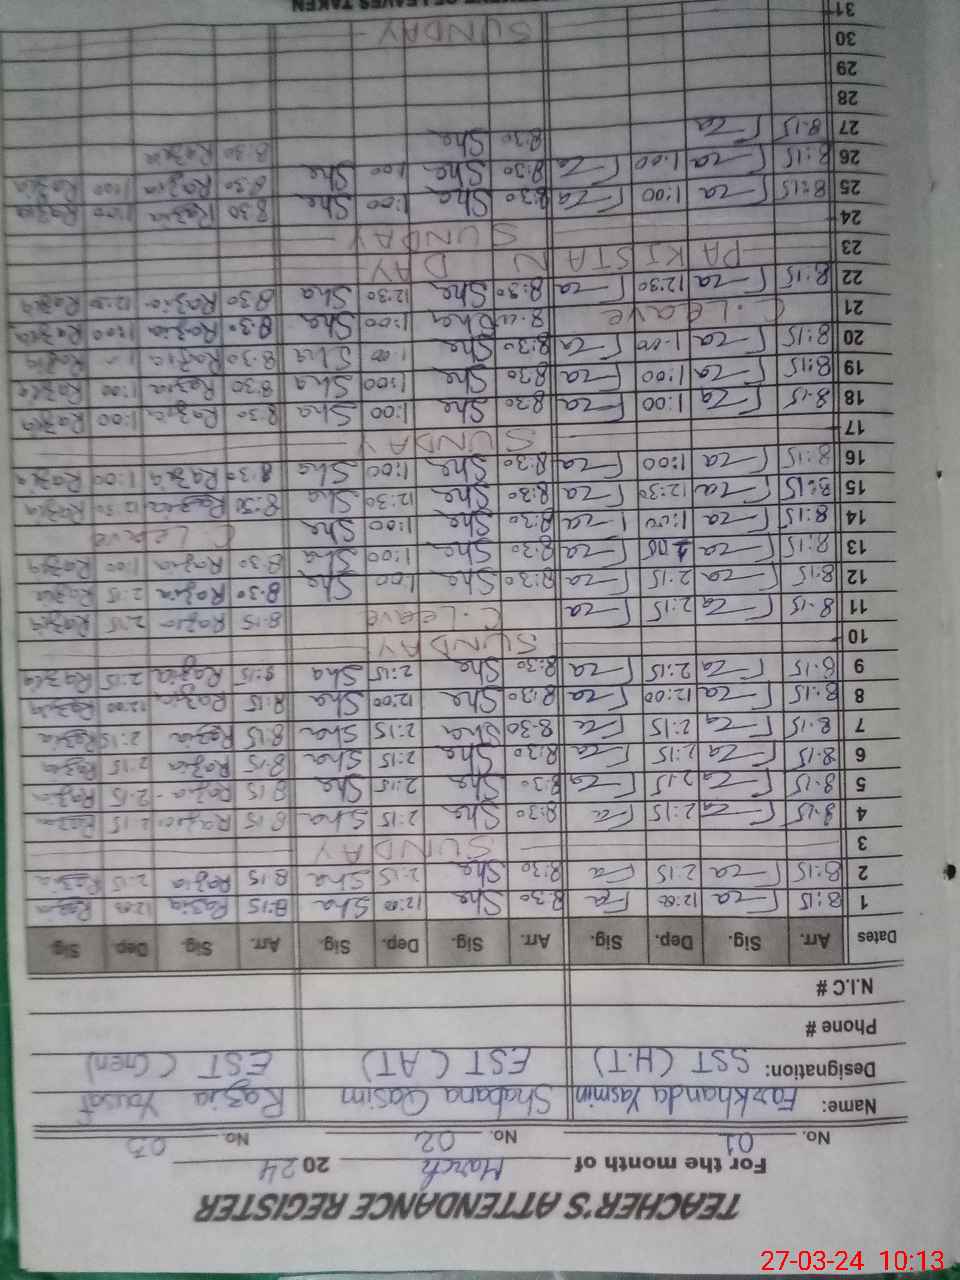 TEACHER'S ATTENDANCE REGISTER
For the month of March 2024
No. 01 No. 02 No. 03
Name: Farkhanda Yasmin Shabana Qasim Razia Yousaf
Designation: SST (H.T) EST (AT) EST (Gen)
Phone #
N.I.C #
Dates Arr. Sig. Dep. Sig. Arr. Sig. Dep. Sig. Arr. Sig. Dep. Sig.
1 8:15 F-za 12:00 Fza 8:30 Sha 12:00 Sha 8:15 Razia 12:00 Razia
2 8:15 F-za 2:15 Fa 8:30 Sha 2:15 Sha 8:15 Razia 2:15 Razia
3 SUNDAY
4 8.15 F-za 2:15 Fa 8:30 Sha 2:15 Sha 8.15 Razia 2.15 Razia
5 8.15 F-za 2.15 F-za 8:30 She 2:15 She 8.15 Razia 2.15 Razia
6 8.15 F-za 2:15 F-za 8:30 She 2:15 Sha 8.15 Razia 2.15 Razia
7 8.15 F-za 2:15 F-za 8:30 Sha 2:15 Sha 8:15 Razia 2:15 Razia
8 8:15 F-za 12:00 F-za 8:30 She 12:00 Sha 8:15 Razia 12:00 Razia
9 8:15 F-za 2:15 F-za 8:30 She 2:15 Sha 8:15 Razia 2:15 Razia
10 SUNDAY
11 8.15 F-za 2:15 F-za C.Leave 8:15 Razia 2:15 Razia
12 8.15 F-za 2:15 F-za 8:30 She 1:00 She 8.30 Razia 2:15 Razia
13 8:15 F-za F-za 8:30 She 1:00 Sha 8.30 Razia 1:00 Razia
14 8:15 F-za 1:00 F-za 8:30 She 1:00 She C.Leave
15 8:15 F-za 12:30 F-za 8:30 She 12:30 Sha 8:30 Razia 12:30 Razia
16 8:15 F-za 1:00 F-za 8:30 She 1:00 Sha 8:30 Razia 1:00 Razia
17 SUNDAY
18 8.15 F-za 1:00 F-za 8:30 She 1:00 Sha 8:30 Razia 1:00 Razia
19 8:15 F-za 1:00 F-za 8:30 She 1:00 Sha 8:30 Razia 1:00 Razia
20 8:15 F-za 1:00 F-za 8:30 She 1:00 Sha 8:30 Razia Razia
21 C.Leave Sha 1:00 Sha 8.30 Razia 1:00 Razia
22 8:15 F-za 12:30 F-za 8:30 She 12:30 Sha 8:30 Razia 12:30 Razia
23 PAKISTAN DAY
24 SUNDAY
25 8:15 F-za 1:00 F-za 8:30 Sha 1:00 She 8:30 Razia 1:00 Razia
26 8:15 F-za 1:00 F-za 8:30 She 1:00 She 8:30 Razia 1:00 Razia
27 8.15 F-za 8:30 She 8:30 Razia
28
29
30
31 SUNDAY
OF LEAVES TAKEN
27-03-24 10:13